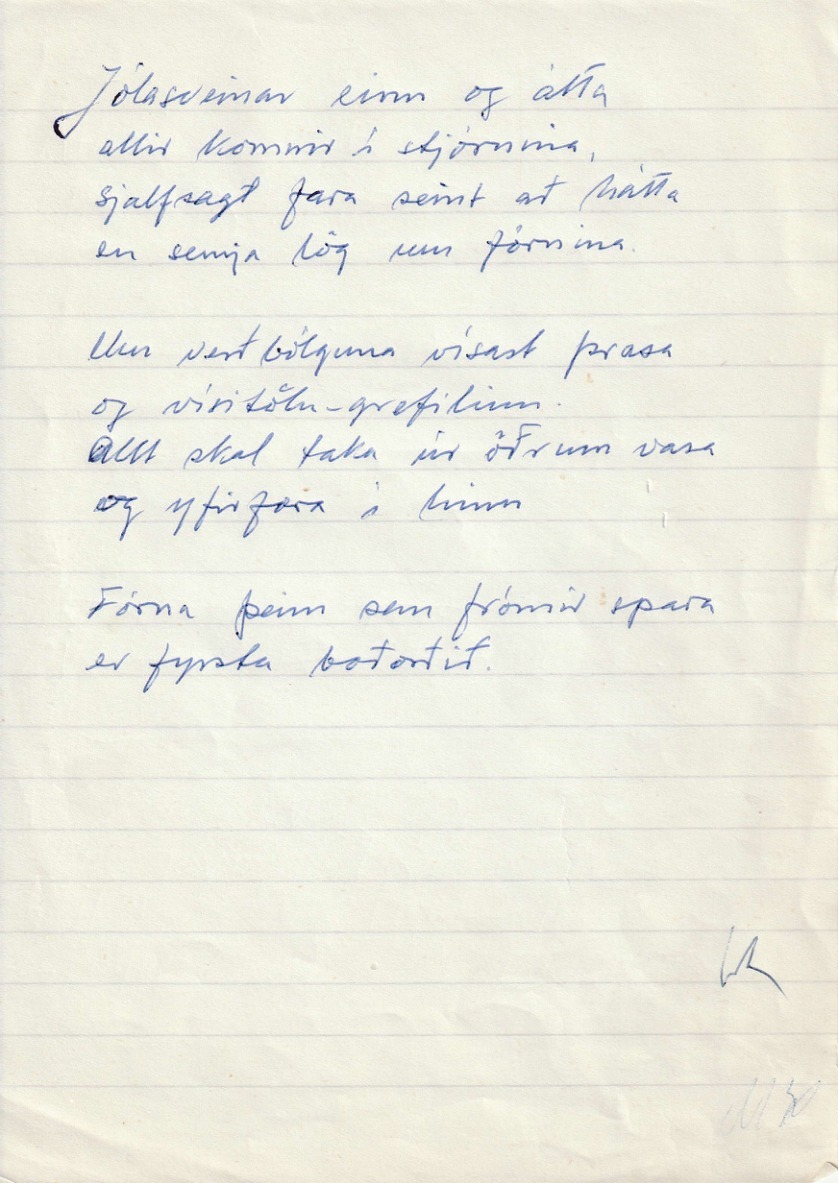 Jólasveinar einn og átta
allir komnir í stjórnina,
sjálfsagt fara seint að hátta
en semja lög um fórnina.
Um verðbólguna vísast þrasa
og vísitölu-grefilinn.
Allt skal taka úr öðrum vasa
og yfirfæra í hinn
Fórna þeim sem frómir spara
er fyrsta boðorðið.